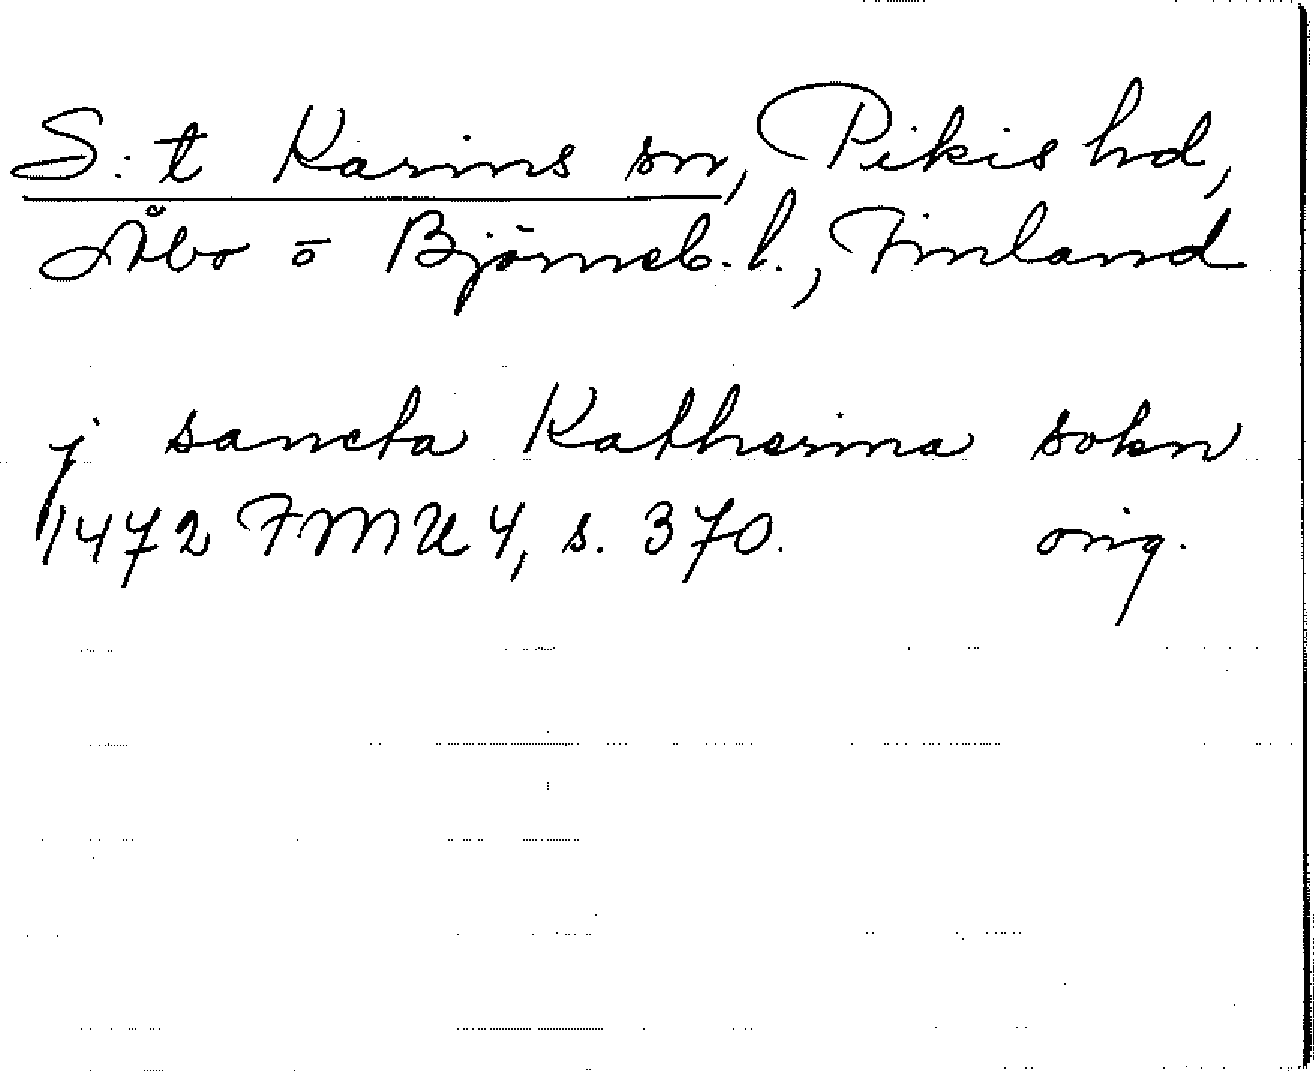 S:t Karins sn, Pikis hd,
Åbo o Björneb. l., Finland
j sancta Katherina sokn
1472 FMU 4, s. 370. orig.